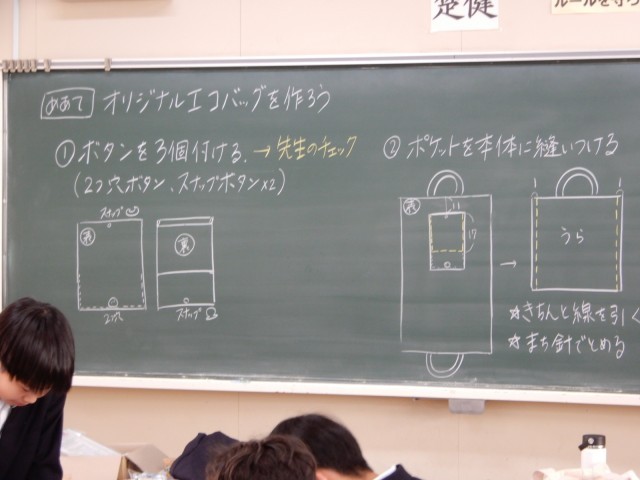 楚健
ルールを守ろ
めあて オリジナルエコバッグを作ろう
①ボタンを3個付ける。→先生のチェック
(2つ穴ボタン、スナップボタン×2)
スナップ
表
2つ穴
裏
スナップ
②ポケットを本体に縫いつける
表
11
17
→
うら
☆きちんと線を引く
☆まち針でとめる